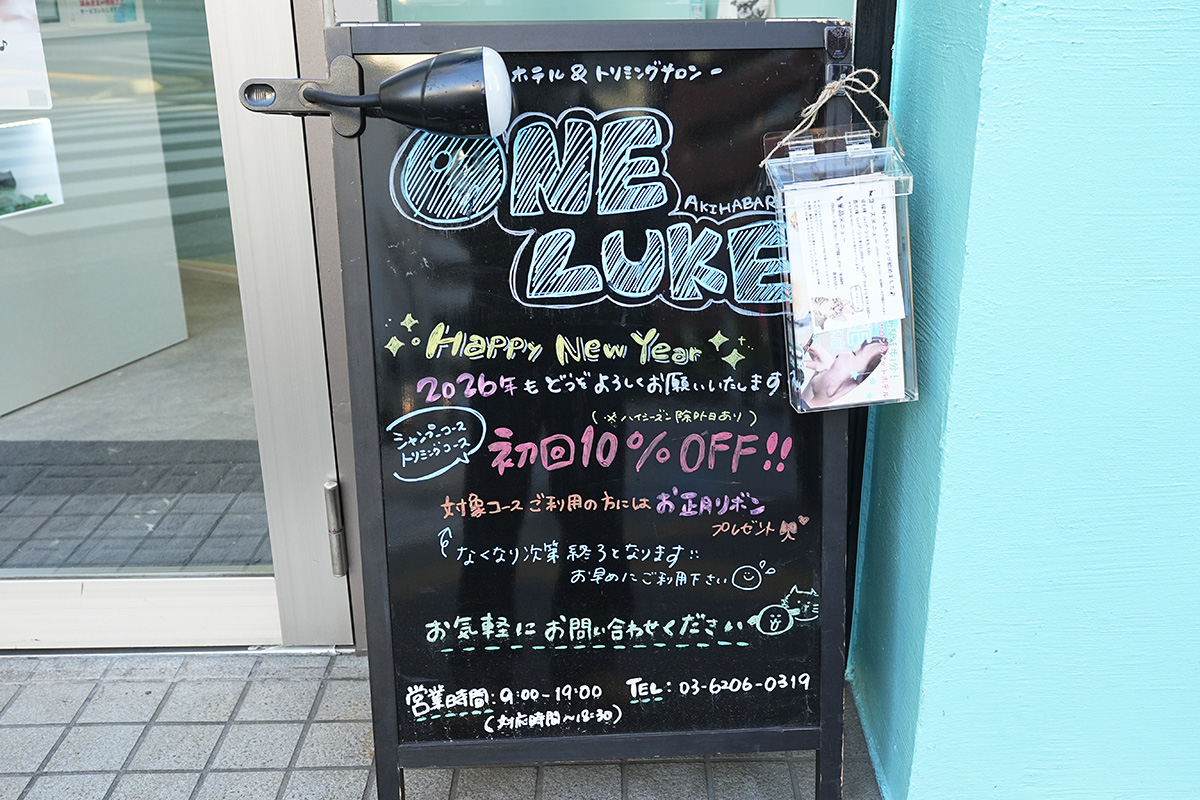 ホテル & トリミングサロン -
ONE
AKIHABAR
LUKE
Happy New Year
2026年もどうぞよろしくお願いいたします
(※ハイシーズン除外日あり)
シャンプーコース
トリミングコース
初回10%OFF!!
対象コースご利用の方にはお正月リボン
プレゼント
なくなり次第終了となります!!
お早めにご利用下さい
お気軽にお問い合わせください
営業時間:9:00-19:00 TEL:03-6206-0319
(対応時間〜18:30)